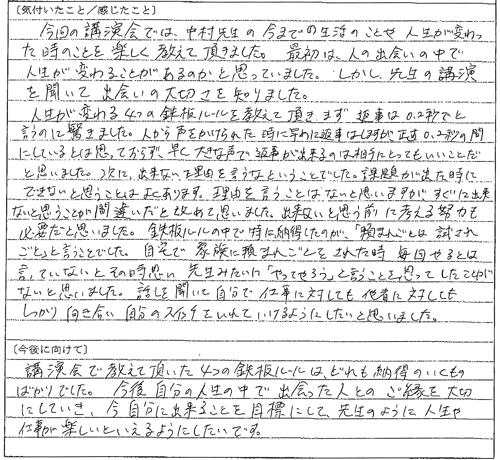 〔気付いたこと／感じたこと〕
今回の講演会では、中村先生の今までの生活のことや人生が変わっ
た時のことを楽しく教えて頂きました。 最初は、人の出会いの中で
人生が変わることがあるのかと思っていました。しかし、先生の講演
を聞いて出会いの大切さを知りました。
人生が変わる4つの鉄板ルールを教えて頂き まず 返事は0.2秒でと
言うのに驚きました。人から声をかけられた時に早めに返事はしますが正直0.2秒の間
にしているとは思っておらず、早く大きな声で返事が出来るのは相手にとってもいいことだ
と思いました。次に、出来ない理由を言うなということでした。課題が出た時に
できないと思うことはよくあります。理由を言うことはないと思いますが すぐに出来
ないと思うことが間違いだと改めて思いました。出来ないと思う前に考える努力も
必要だと思いました。 鉄板ルールの中で特に納得したのが、「頼まれごとは 試され
ごと」と言うことでした。自宅で 家族に頼まれごとをされた時 毎回やるとは
言っていないとその時思い 先生みたいに「やってやろう」と言うことを思ってしたことが
ないと思いました。話しを聞いて自分で仕事に対しても他者に対しても
しっかり向き合い自分のスイッチをいれていけるようにしたいと思いました。
〔今後に向けて〕
講演会で教えて頂いた4つの鉄板ルールは、どれも納得のいくもの
ばかりでした。 今後 自分の人生の中で出会った人とのご縁を大切
にしていき、今自分に出来ることを目標にして、先生のように人生や
仕事が楽しいといえるようにしたいです。